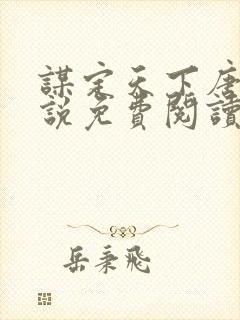 謀定天下唐
說免費閱讀
岳秉飛